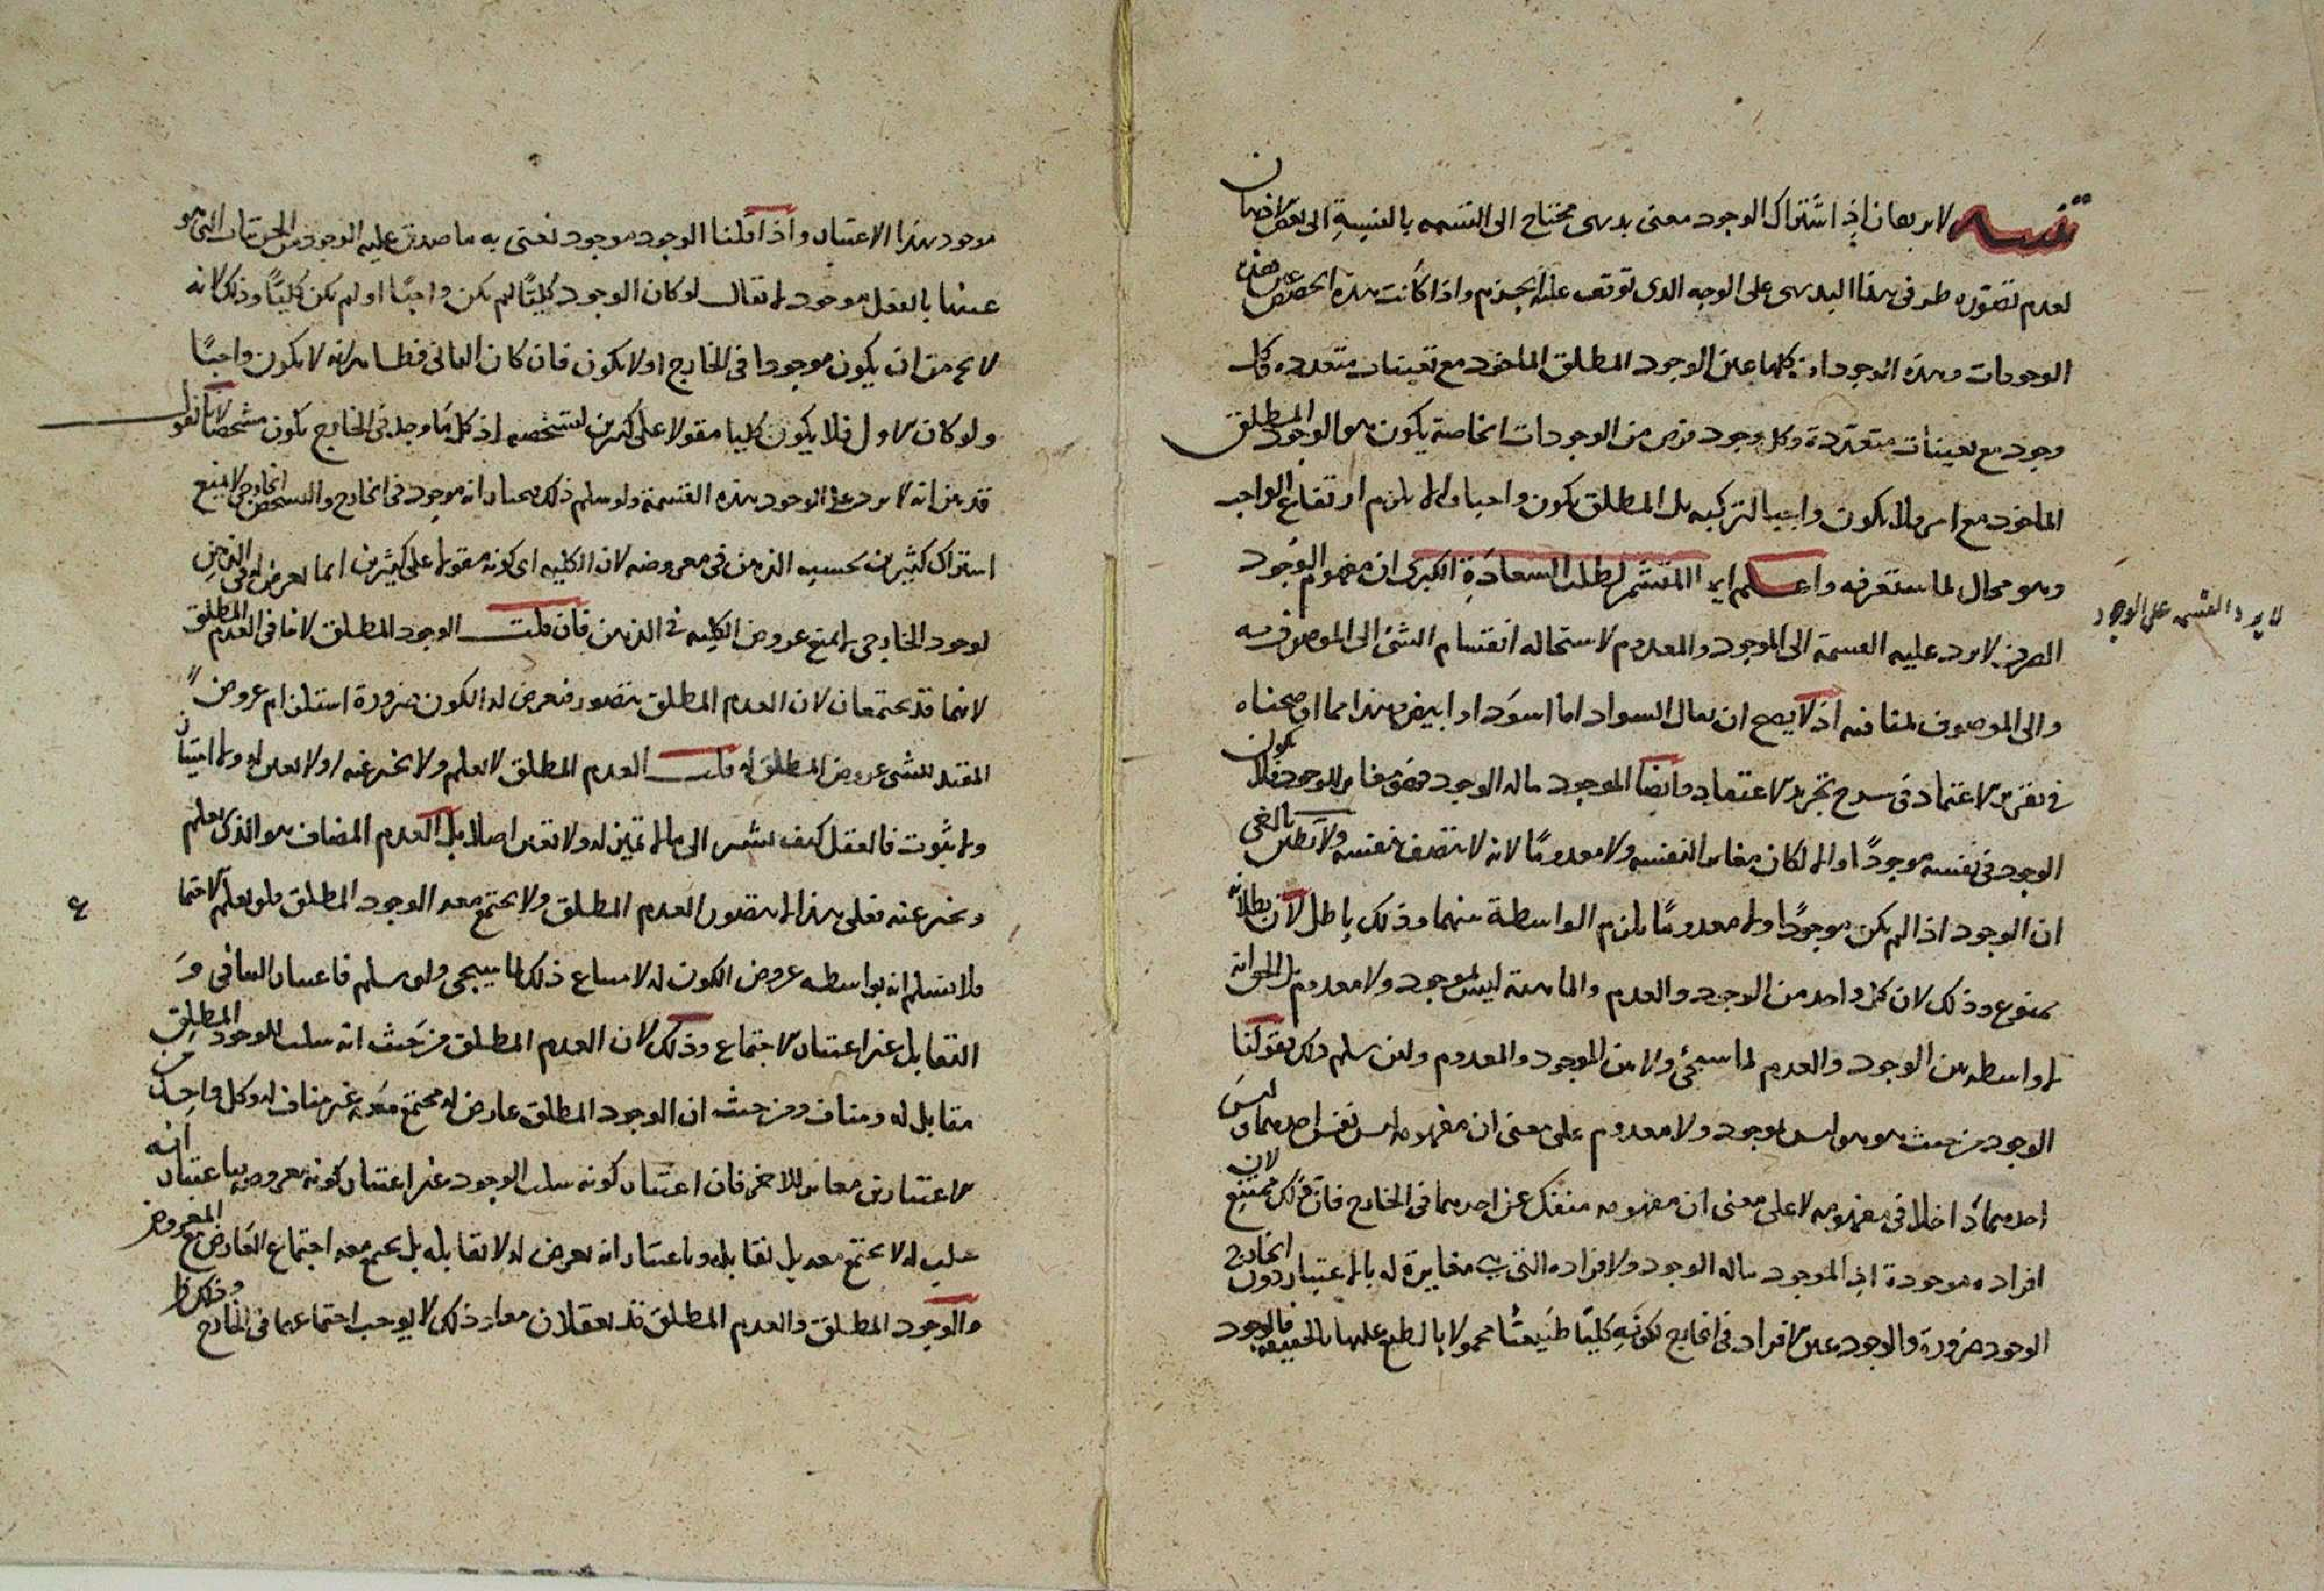 تنبيه لا برهان اذ اشتراك الوجود معنى بديهى محتاج الى التنبيه بالنسبة الى بعض الاذهان
لعدم تصوره طرفى هذا البديهى على الوجه الذى توقف عليه الجزم واذا كانت هذه الحصص عين هذه
الوجودات وهذه الوجودات كلها عين الوجود المطلق الماخوذ مع تعينات متعدده وكل
وجود مع تعينات متعددة وكل وجود من الوجودات الخاصة يكون هو الوجود المطلق
الماخوذ مع امر ولا يكون واجبا لتركبه بل المطلق يكون واجبا والا يلزم ارتفاع الواجب
وهو محال لما ستعرفه واعلم ايها المتشمر لطلب السعادة الكبرى ان مفهوم الوجود
الصرف لا يرد عليه القسمة الى الموجود والمعدوم لاستحاله انقسام الشئ الى الموصوف به
والى الموصوف لمنافيه اذ لا يصح ان يقال السواد اما اسود او ابيض وهذا مما اوضحناه
فى تقرير الاعتماد فى شرح تجريد الاعتقاد وايضا الموجود ماله الوجود مغاير للوجود فلا يكون
الوجود فى نفسه موجودًا والا لكان مغاير النفسه ولا معدومًا لانه لا يتصف بنفسه ولا بطل
ان الوجود اذا لم يكن موجودًا ولا معدومًا يلزم الواسطة بينهما وذلك باطل لان بطلانه
ممنوع وذلك لان كل واحد من الوجود والعدم والماهية ليس لموجود ولا معدوم بل الحق انه
لا واسطه بين الوجود والعدم لما سيجئ ولا بين الموجود والمعدوم ولئن سلم ذلك بقولنا
الوجود من حيث هو هو ليس بموجود ولا معدوم على معنى ان مفهومه ليس نفس احدهما وليس
احدهما داخلا فى مفهومه لا على معنى ان مفهومه منفك عن احدهما فى الخارج فان ذلك ممتنع لان
افراده موجودة اذ الموجود ماله الوجود ولا افراده التى هى مغايرة له بالاعتبار دون الخارج
الوجود ضرورة والوجود عين الافراد فى الخارج لكونه كليًا طبيعيًا محمولا بالطبع عليها بالحقيقة فالوجود
لا يرد القسمه على الوجود
موجود بهذا الاعتبار واذا قلنا الوجود موجود نعنى به ما صدق عليه الوجود من الجزئيات التى هو
عينها بالفعل موجود لا يقال لو كان الوجود كليًا لم يكن واجبًا او لم يكن كليًا وذلك لانه
لا يخ من ان يكون موجودا فى الخارج او لا يكون فان كان الثانى فظاهر انه لا يكون واجبًا
ولو كان الاول فلا يكون كليا مقولا على كثيرين لتشخصه اذ كل ما وجد فى الخارج يكون مشخصًا لانا نقول
قد مر انه لا يرد على الوجود هذه القسمة ولو سلم ذلك فمختار انه موجود فى الخارج والتشخص الخارجى لا يمنع
اشتراك كثيرين بحسب الذهن فى معروضه لان الكليه اى كونه مقولا على كثيرين انما يعرض له فى الذهن
لوجود الخارجى لا يمنع عروض الكليه فى الذهن فان قلت الوجود المطلق لا ينافى العدم المطلق
لانهما قد يجتمعان لان العدم المطلق يتصور فيعرض له الكون ضرورة استلزام عروض
المقيد للشئ عروض المطلق له قلت العدم المطلق لا يعلم ولا يخبر عنه ولا تعين له ولا امتياز
ولا ثبوت فالعقل كيف يشير الى ما لا تميز له ولا تعين اصلا بل العدم المضاف هو الذى يعلم
ويخبر عنه فعلى هذا لا يتصور العدم المطلق ولا يجتمع معه الوجود المطلق ولو يعلم الاجتما
فلا نسلم انه بواسطه عروض الكون له لامتناع ذلك لما سيجى ولو سلم فاعتبار التنافى و
التقابل غير اعتبار الاجتماع وذلك لان العدم المطلق من حيث انه سلب الوجود المطلق
مقابل له ومناف ومن حيث ان الوجود المطلق عارض له مجتمع معه غير مناف له وكل واحد من
الاعتبارين مغاير للاخر فان اعتبار كونه سلب الوجود غير اعتبار كونه معروضه باعتبار انه
سلب له لا يجتمع معه بل تقابله وباعتبار انه يعرض له لا تقابله بل يجتمع معه اجتماع العارض مع المعروض
والوجود المطلق والعدم المطلق قد يعقلان معا وذلك لا يوجب اجتماعهما فى الخارج وذلك ظ